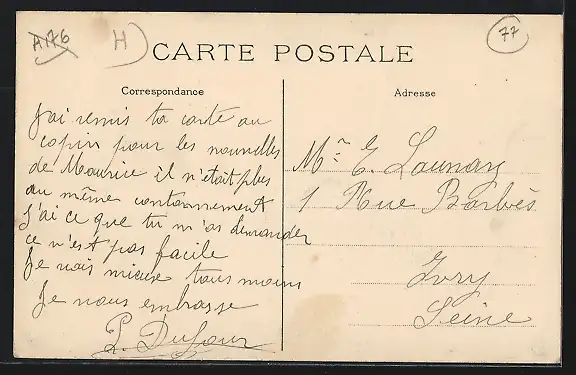 A176
H
77
CARTE POSTALE
Correspondance
Adresse
J'ai remis ta carte au
copin pour les nouvelles
de Maurice il n'était plus
au même cantonnement
j'ai ce que tu m'as demander
ce n'est pas facile
Je vais mieux tous moins
Je vous embrasse
P. Dufour
Mr E. Launay
1 Rue Barbès
Ivry
Seine